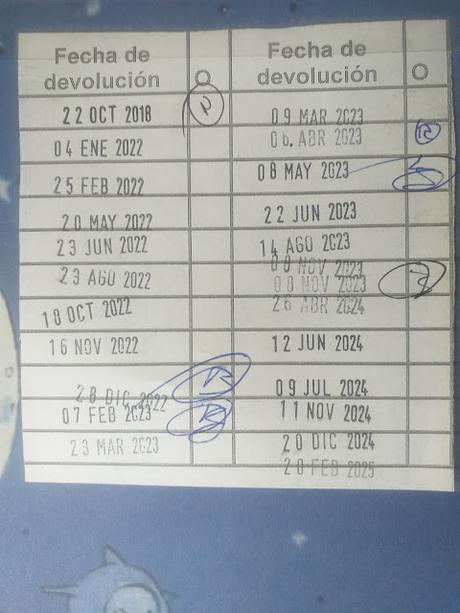 Fecha de
devolución
O
22 OCT 2018
04 ENE 2022
25 FEB 2022
20 MAY 2022
23 JUN 2022
23 AGO 2022
18 OCT 2022
16 NOV 2022
28 DIC 2022
07 FEB 2023
23 MAR 2023
Fecha de
devolución
O
09 MAR 2023
06. ABR 2023
08 MAY 2023
22 JUN 2023
14 AGO 2023
08 NOV 2023
08 NOV 2023
26 ABR 2024
12 JUN 2024
09 JUL 2024
11 NOV 2024
20 DIC 2024
28 FEB 2025